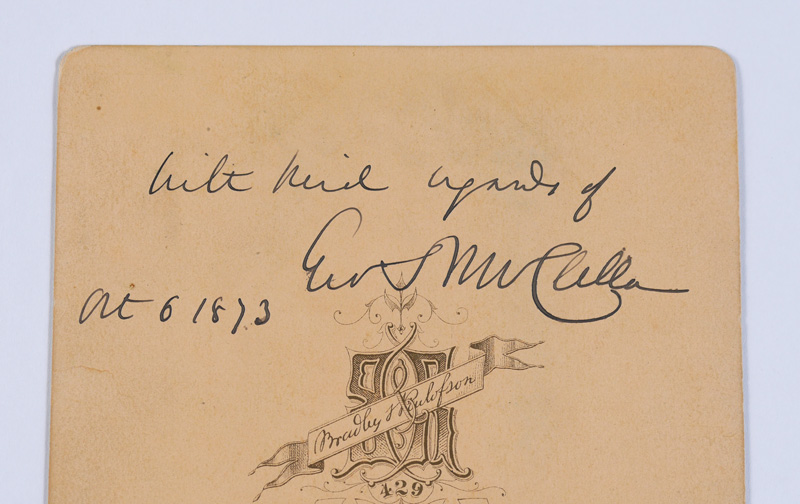 With kind regards of
Geo B McClellan
Oct 6 1873
Bradley & Rulofson
429